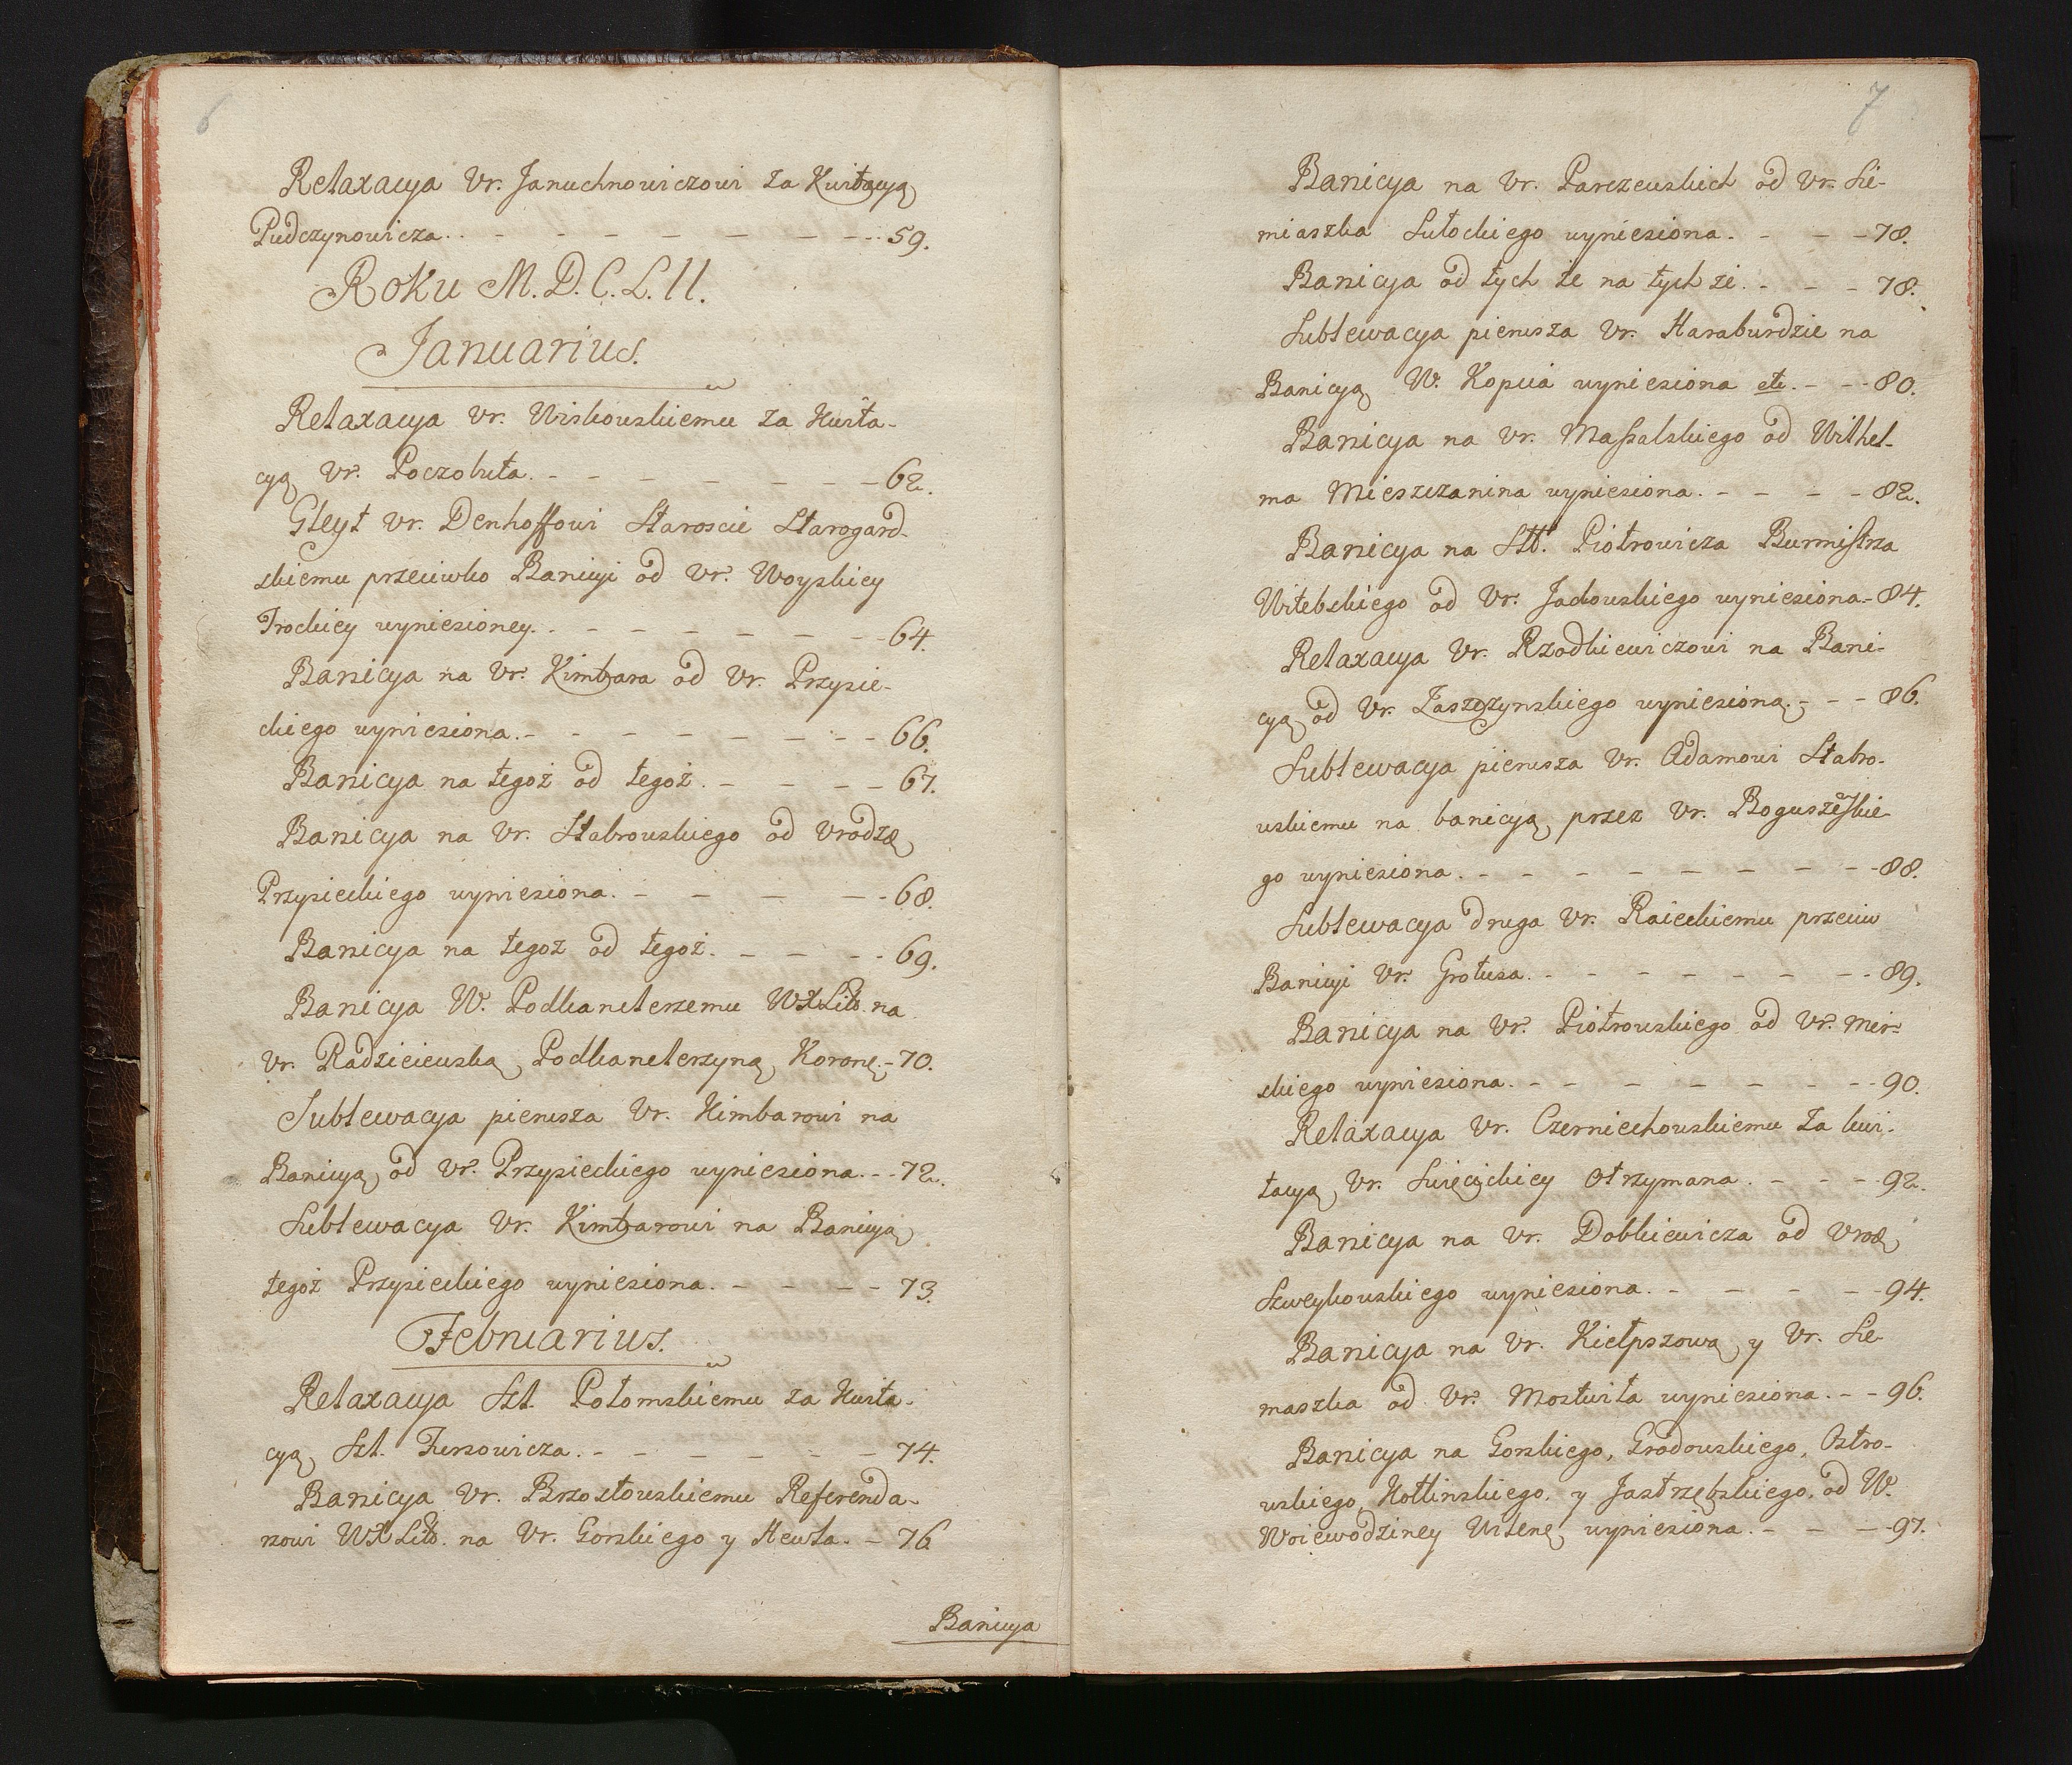 6
Relaxacya Vr. Januchnowiczowi za Kwitacyą
Pudczynowicza. - - - - - - - - 59.
Roku M.D.C.L.II.
Januarius.
Relaxacya Vr. Wiskowskiemu za Kwita-
cyą Vr. Poczobuta. - - - - - - - 62.
Gleyt Vr. Denhoffowi Staroscie Starogard-
skiemu przeciwko Banicyi od Vr. Woyskiey
Trockiey wyniesioney. - - - - - - - 64.
Banicya na Vr. Kimbara od Vr. Przysie-
ckiego wyniesiona. - - - - - - - 66.
Banicya na tegoż od tegoż. - - - - 67.
Banicya na Vr. Stabrowskiego od Vrodzę
Przysieckiego wyniesiona. - - - - - 68.
Banicya na tegoż od tegoż. - - - - 69.
Banicya W. Podkanclerzemu WXLitt. na
Vr. Radzieiewską Podkanclerzyną Koronę. - 70.
Sublewacya pierwsza Vr. Kimbarowi na
Banicyą od Vr. Przysieckiego wyniesiona. - - 72.
Sublewacya Vr. Kimbarowi na Banicyą
tegoż Przysieckiego wyniesiona. - - - - 73.
Februarius.
Relaxacya Szl. Potomskiemu za Kwita-
cyą Szl. Fursowicza. - - - - - - 74.
Banicya Vr. Brzostowskiemu Referenda-
rzowi WXLitt. na Vr. Gorskiego y Hewla. - 76
Banicya
7
Banicya na Vr. Parczewskich od Vr. Sie-
miaszka Sutockiego wyniesiona. - - - 78.
Banicya od tych że na tych że. - - - 78.
Sublewacya pierwsza Vr. Haraburdzie na
Banicyą W. Kopcia wyniesiona etc. - - 80.
Banicya na Vr. Massalskiego od Wilhel-
ma Mieszczanina wyniesiona. - - - - 82.
Banicya na Szl. Piotrowicza Burmistrza
Witebskiego od Vr. Jackowskiego wyniesiona. - 84.
Relaxacya Vr. Rzodkiewiczowi na Bani-
cyą od Vr. Zaszczynskiego wyniesioną. - - - 86.
Sublewacya pierwsza Vr. Adamowi Stabro-
wskiemu na banicyą przez Vr. Boguszewskie-
go wyniesiona. - - - - - - - - 88.
Sublewacya druga Vr. Raieckiemu przeciw
Banicyi Vr. Grotusa. - - - - - - - 89.
Banicya na Vr. Piotrowskiego od Vr. Mir-
skiego wyniesiona. - - - - - - - 90.
Relaxacya Vr. Czerniechowskiemu za kwi-
tacyą Vr. Swięcickiey otrzymana. - - - 92.
Banicya na Vr. Dobkiewicza od Vroę
Szweykowskiego wyniesiona. - - - - - 94.
Banicya na Vr. Kiełpszową y Vr. Sie-
maszka od Vr. Mostwiła wyniesiona. - - 96.
Banicya na Gorskiego, Grodowskiego, Ostro-
wskiego, Kotlinskiego, y Jastrzębskiego, od W.
Woiewodziney Wilenę wyniesiona. - - - 97.